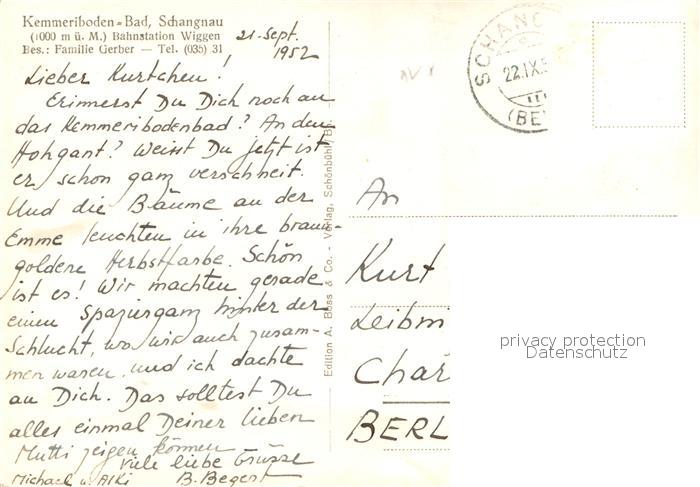 Kemmeriboden-Bad, Schangnau
(1000 m ü. M.) Bahnstation Wiggen
Bes.: Familie Gerber — Tel. (035) 31
21. Sept.
1952
Lieber Kurtchen!
Erinnerst Du Dich noch an
das Kemmeribodenbad? An den
Hohgant? Weisst Du jetzt ist
er schon ganz verschneit.
Und die Bäume an der
Emme leuchten in ihre braun-
goldene Herbstfarbe. Schön
ist es! Wir machten gerade
einen Spaziergang hinter der
Schlucht, wo wir auch zusam-
men waren und ich dachte
an Dich. Das solltest Du
alles einmal Deiner lieben
Mutti zeigen können
Viele liebe Grüsse
Michael u. Alki B. Begert
Edition A. Boss & Co. - Verlag, Schönbühl-Be
SCHANG
22.IX.5
(BE
An
Kurt
Leibni
Char
BERL
privacy protection
Datenschutz